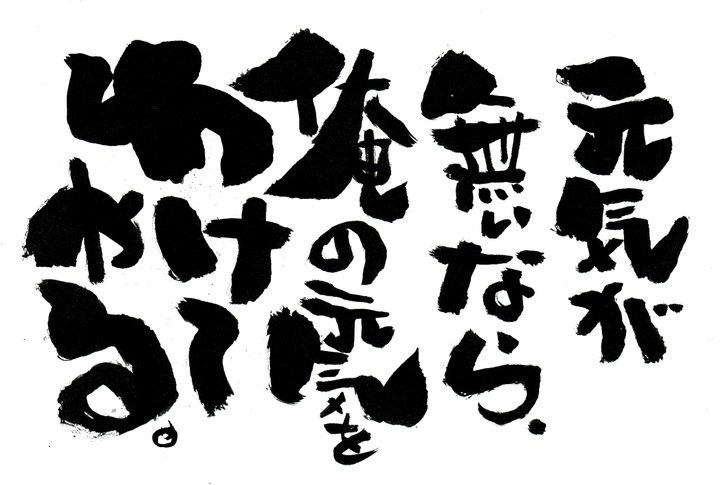 元気が
無いなら、
俺の元気を
わけて
やる。